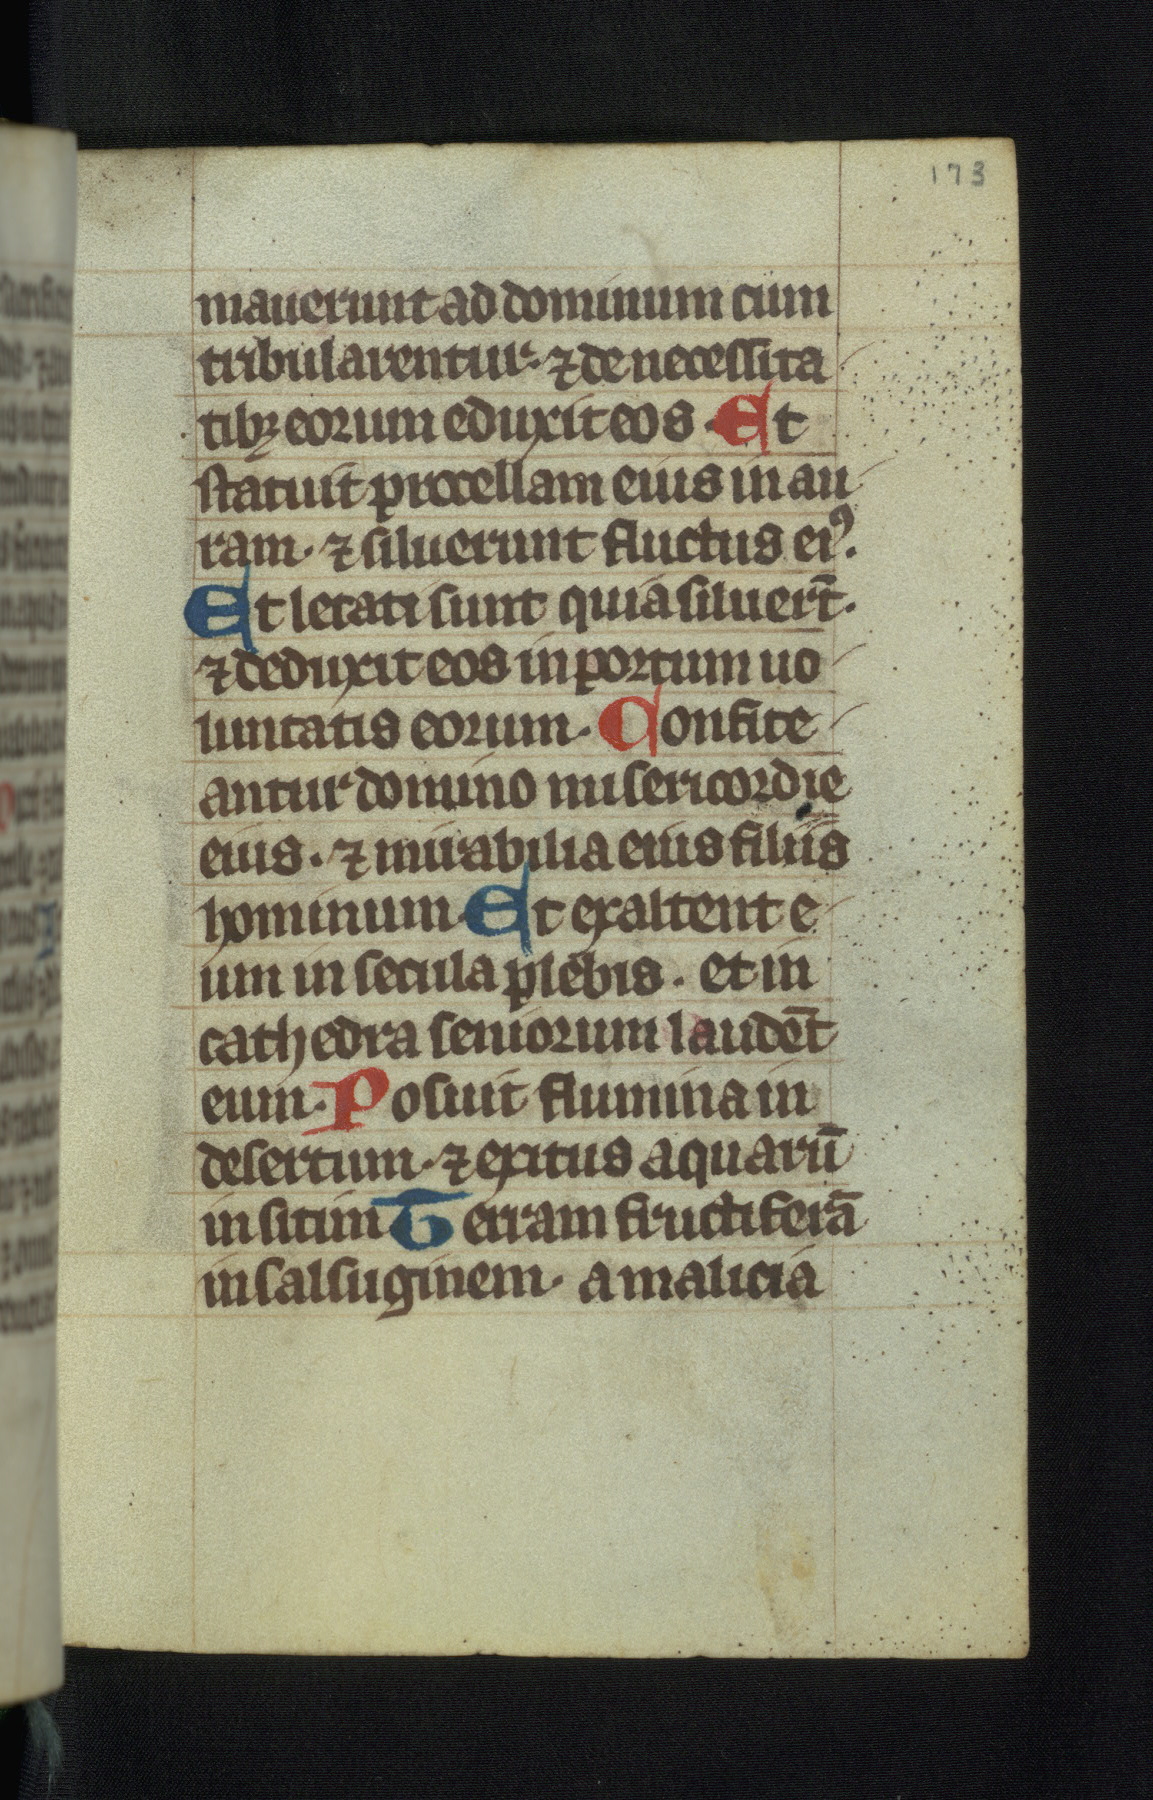 173
mauerunt ad dominum cum
tribularentur · ⁊ de necessita
tibꝫ eorum eduxit eos · Et
statuit procellam eius in au
ram · ⁊ siluerunt fluctus eiꝰ.
Et letati sunt quia siluer̄t ·
⁊ deduxit eos in portum uo
luntatis eorum · Confite
antur domino misericordie
eius · ⁊ mirabilia eius filiis
hominum Et exaltent e
um in secula plebis · et in
cathedra seniorum laudēt
eum · Posuit flumina in
desertum · ⁊ exitus aquarū
in sitim Terram fructiferā
in salsuginem · a malicia